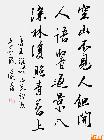 空山不見人但聞
人語響返景入
深林復照青苔上